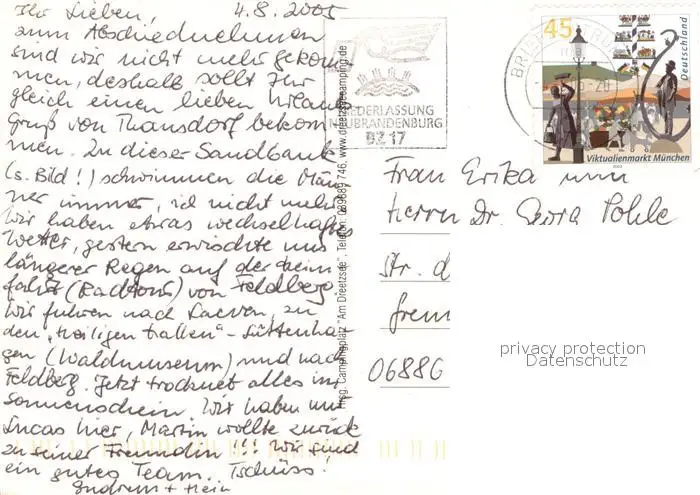 Ihr Lieben, 4.8.2005
zum Abschiednehmen
sind wir nicht mehr gekom-
men, deshalb sollt Ihr
gleich einen lieben Urlaubs-
gruß von Thomsdorf bekom-
men. Zu dieser Sandbank
(s. Bild!) schwimmen die Män-
ner immer, ich nicht mehr.
Wir haben etwas wechselhaftes
Wetter, gestern erwischte uns
längerer Regen auf der Heim-
fahrt (Radtour) von Feldberg.
Wir fuhren nach Carwitz, zu
den "Heiligen Hallen" - Lüttenha-
gen (Waldmuseum) und nach
Feldberg. Jetzt trocknet alles im
Sonnenschein. Wir haben nur
Lucas hier, Martin wollte zurück
zu seiner Freundin!!! Wir sind
ein gutes Team. Tschüss!
Gudrun + Hein
Hrsg. Campingplatz "Am Dreetzsee", Telefon: 039889 746, www.dreetzseecamping.de
NIEDERLASSUNG
NEUBRANDENBURG
BZ 17
45
Deutschland
Viktualienmarkt München
Frau Erika und
Herrn Dr. Pohle
Str. d
06886
privacy protection
Datenschutz